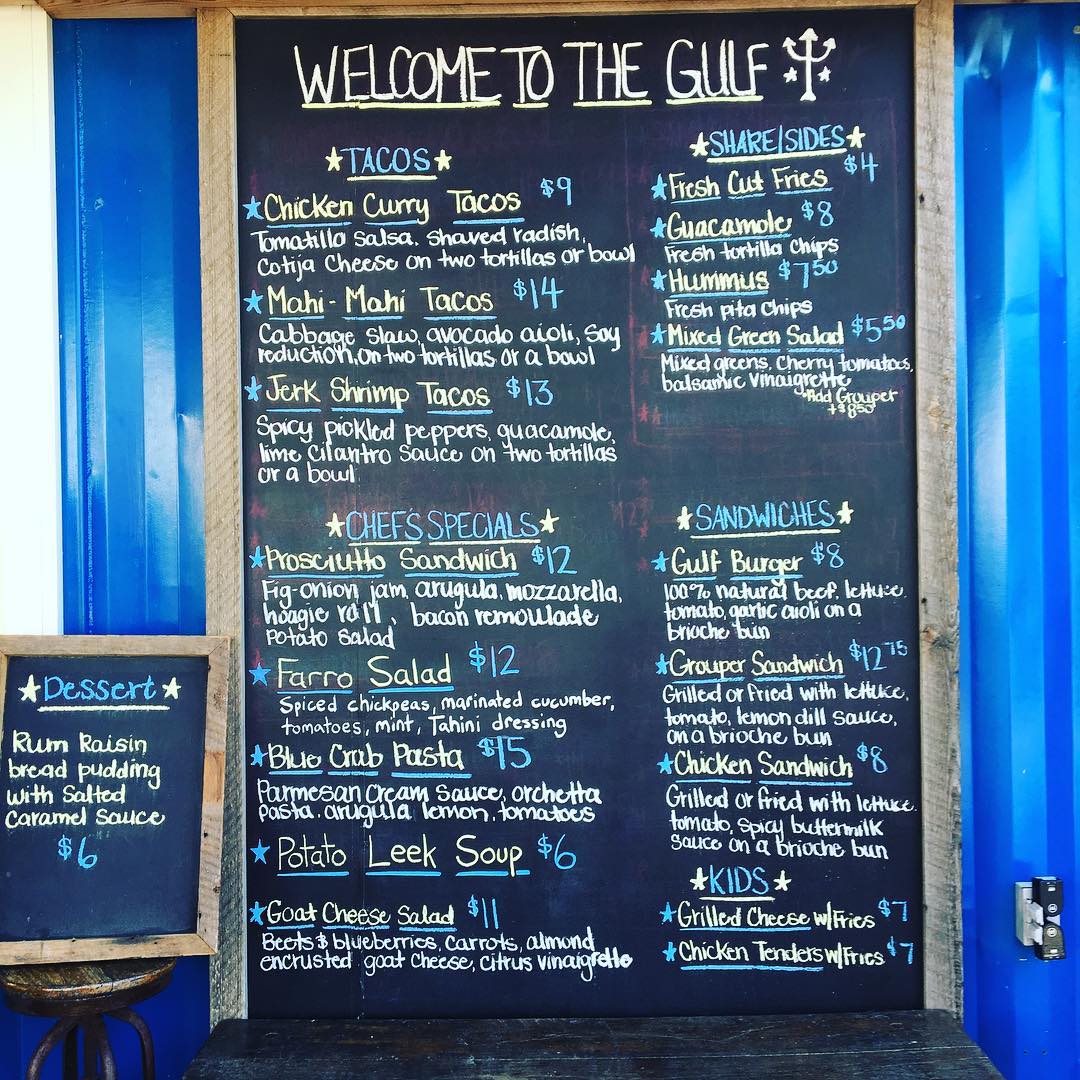 WELCOME TO THE GULF
TACOS
Chicken Curry Tacos $9
Tomatillo Salsa, Shaved radish,
Cotija Cheese on two tortillas or bowl
Mahi-Mahi Tacos $14
Cabbage slaw, avocado aioli, Soy
reduction, on two tortillas or a bowl
Jerk Shrimp Tacos $13
Spicy pickled peppers, guacamole,
lime Cilantro Sauce on two tortillas
or a bowl
SHARE/SIDES
Fresh Cut Fries $4
Guacamole $8
Fresh tortilla Chips
Hummus $7.50
Fresh pita Chips
Mixed Green Salad $5.50
Mixed greens, Cherry tomatoes,
balsamic vinaigrette
*Add Grouper
+$8.50
CHEFS SPECIALS
Prosciutto Sandwich $12
Fig-onion jam, arugula, mozzarella,
hoagie roll, bacon remoulade
Potato Salad
Farro Salad $12
Spiced chickpeas, marinated cucumber,
tomatoes, mint, Tahini dressing
Blue Crab Pasta $15
Parmesan Cream Sauce, orchetta
pasta, arugula lemon, tomatoes
Potato Leek Soup $6
Goat Cheese Salad $11
Beets & blueberries, Carrots, almond
encrusted goat cheese, citrus vinaigrette
SANDWICHES
Gulf Burger $8
100% natural beef, lettuce,
tomato, garlic aioli on a
brioche bun
Grouper Sandwich $12.75
Grilled or fried with lettuce,
tomato, lemon dill sauce,
on a brioche bun
Chicken Sandwich $8
Grilled or fried with lettuce,
tomato, spicy buttermilk
Sauce on a brioche bun
KIDS
Grilled Cheese w/Fries $7
Chicken Tenders w/Fries $7
Dessert
Rum Raisin
bread pudding
with Salted
Caramel Sauce
$6